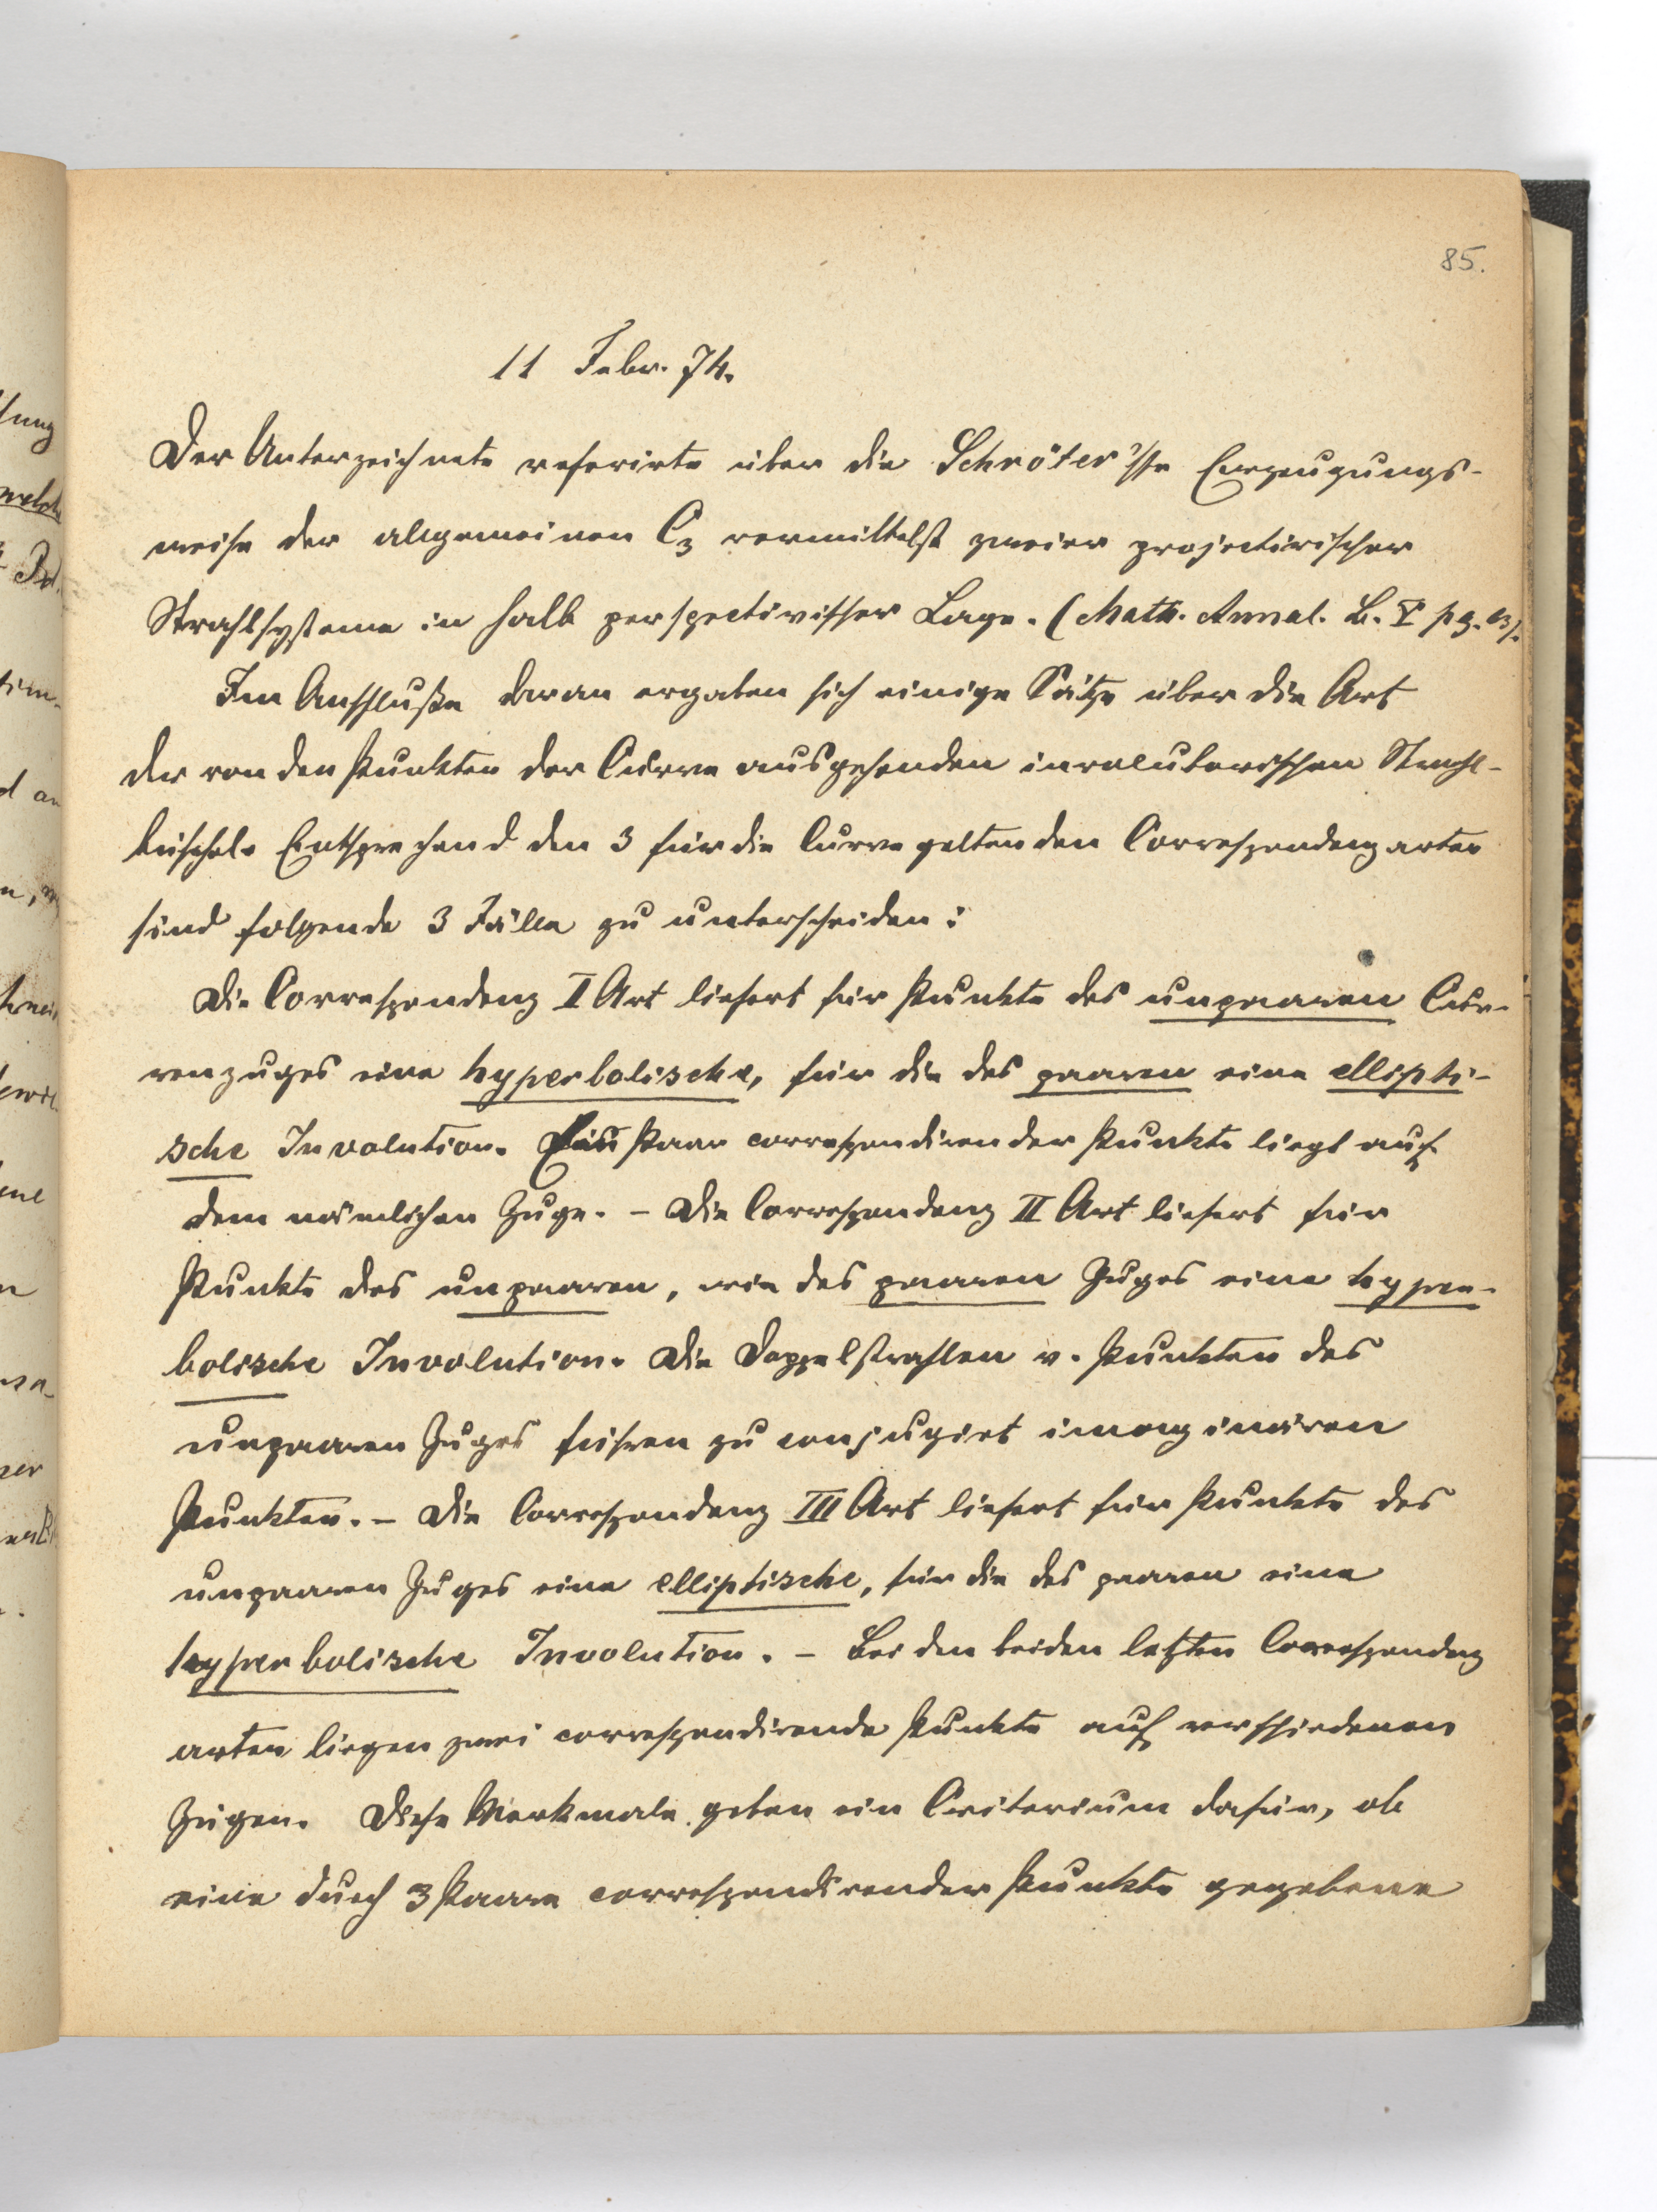 85.
11 Febr. 74.
Der Unterzeichnete referirte über die Schröter'sche Erzeugungs-
weise der allgemeinen C3 vermittelst zweier projectivischer
Strahlsysteme in halb perspectivischer Lage. (Math. Annal. B. V pg.
Im Anschluße daran ergaben sich einige Sätze über die Art
der von den Punkten der Curve ausgehenden involutorischen Strahl-
büschel. Entsprechend den 3 für die Curve geltenden Correspondenzarten
sind folgende 3 Fälle zu unterscheiden:
Die Correspondenz I Art liefert für Punkte des unpaaren Cur-
venzuges eine hyperbolische, für die des paaren eine ellipti-
sche Involution. Ein Paar correspondirender Punkte liegt auf
dem nämlichen Zuge. – Die Correspondenz II Art liefert für
Punkte des unpaaren, wie des paaren Zuges eine hyper-
bolische Involution. Die Doppelstrahlen v. Punkten des
unpaaren Zuges führen zu conjugirt imaginären
Punkten. – Die Correspondenz III Art liefert für Punkte des
unpaaren Zuges eine elliptische, für die des paaren eine
hyperbolische Involution. – Bei den beiden letzten Correspondenz
arten liegen zwei correspondirende Punkte auf verschiedenen
Zügen. Diese Merkmale geben ein Criterium dafür, ob
eine durch 3 Paare correspondirender Punkte gegebene